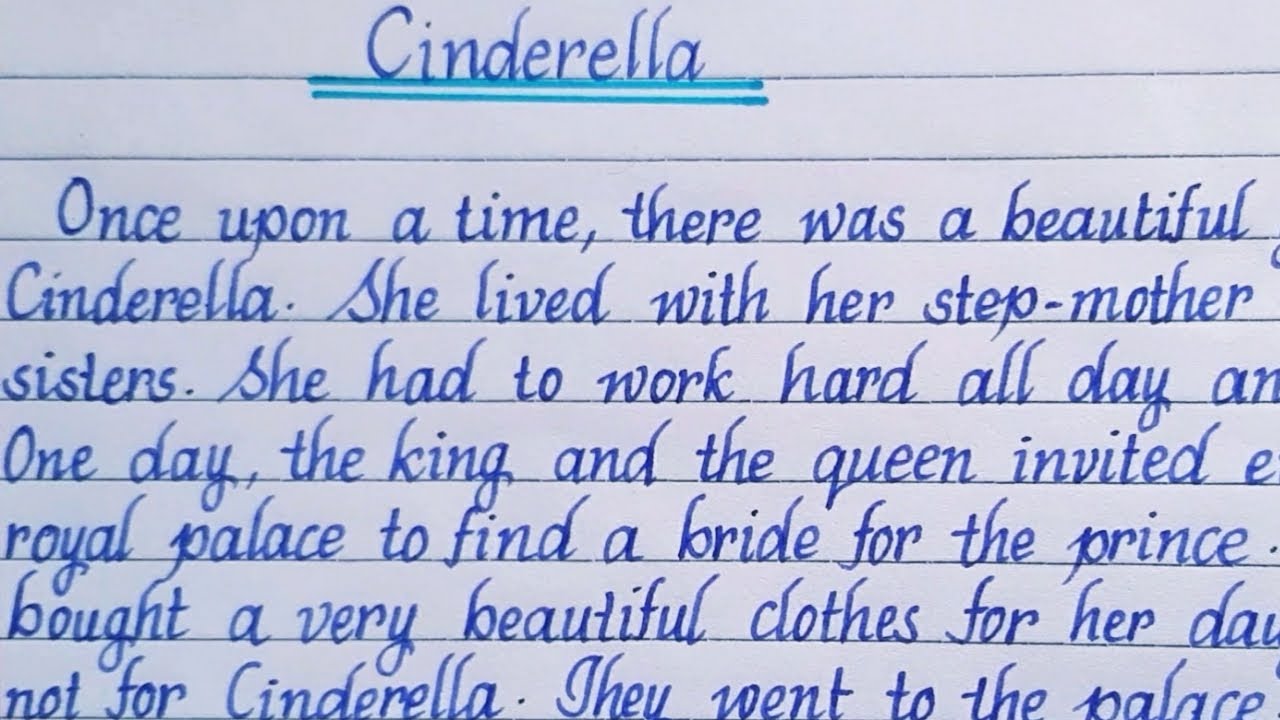 Cinderella
Once upon a time, there was a beautiful
Cinderella. She lived with her step-mother
sisters. She had to work hard all day
One day, the king and the queen invited
royal palace to find a bride for the prince.
bought a very beautiful clothes for her
not for Cinderella. They went to the palace